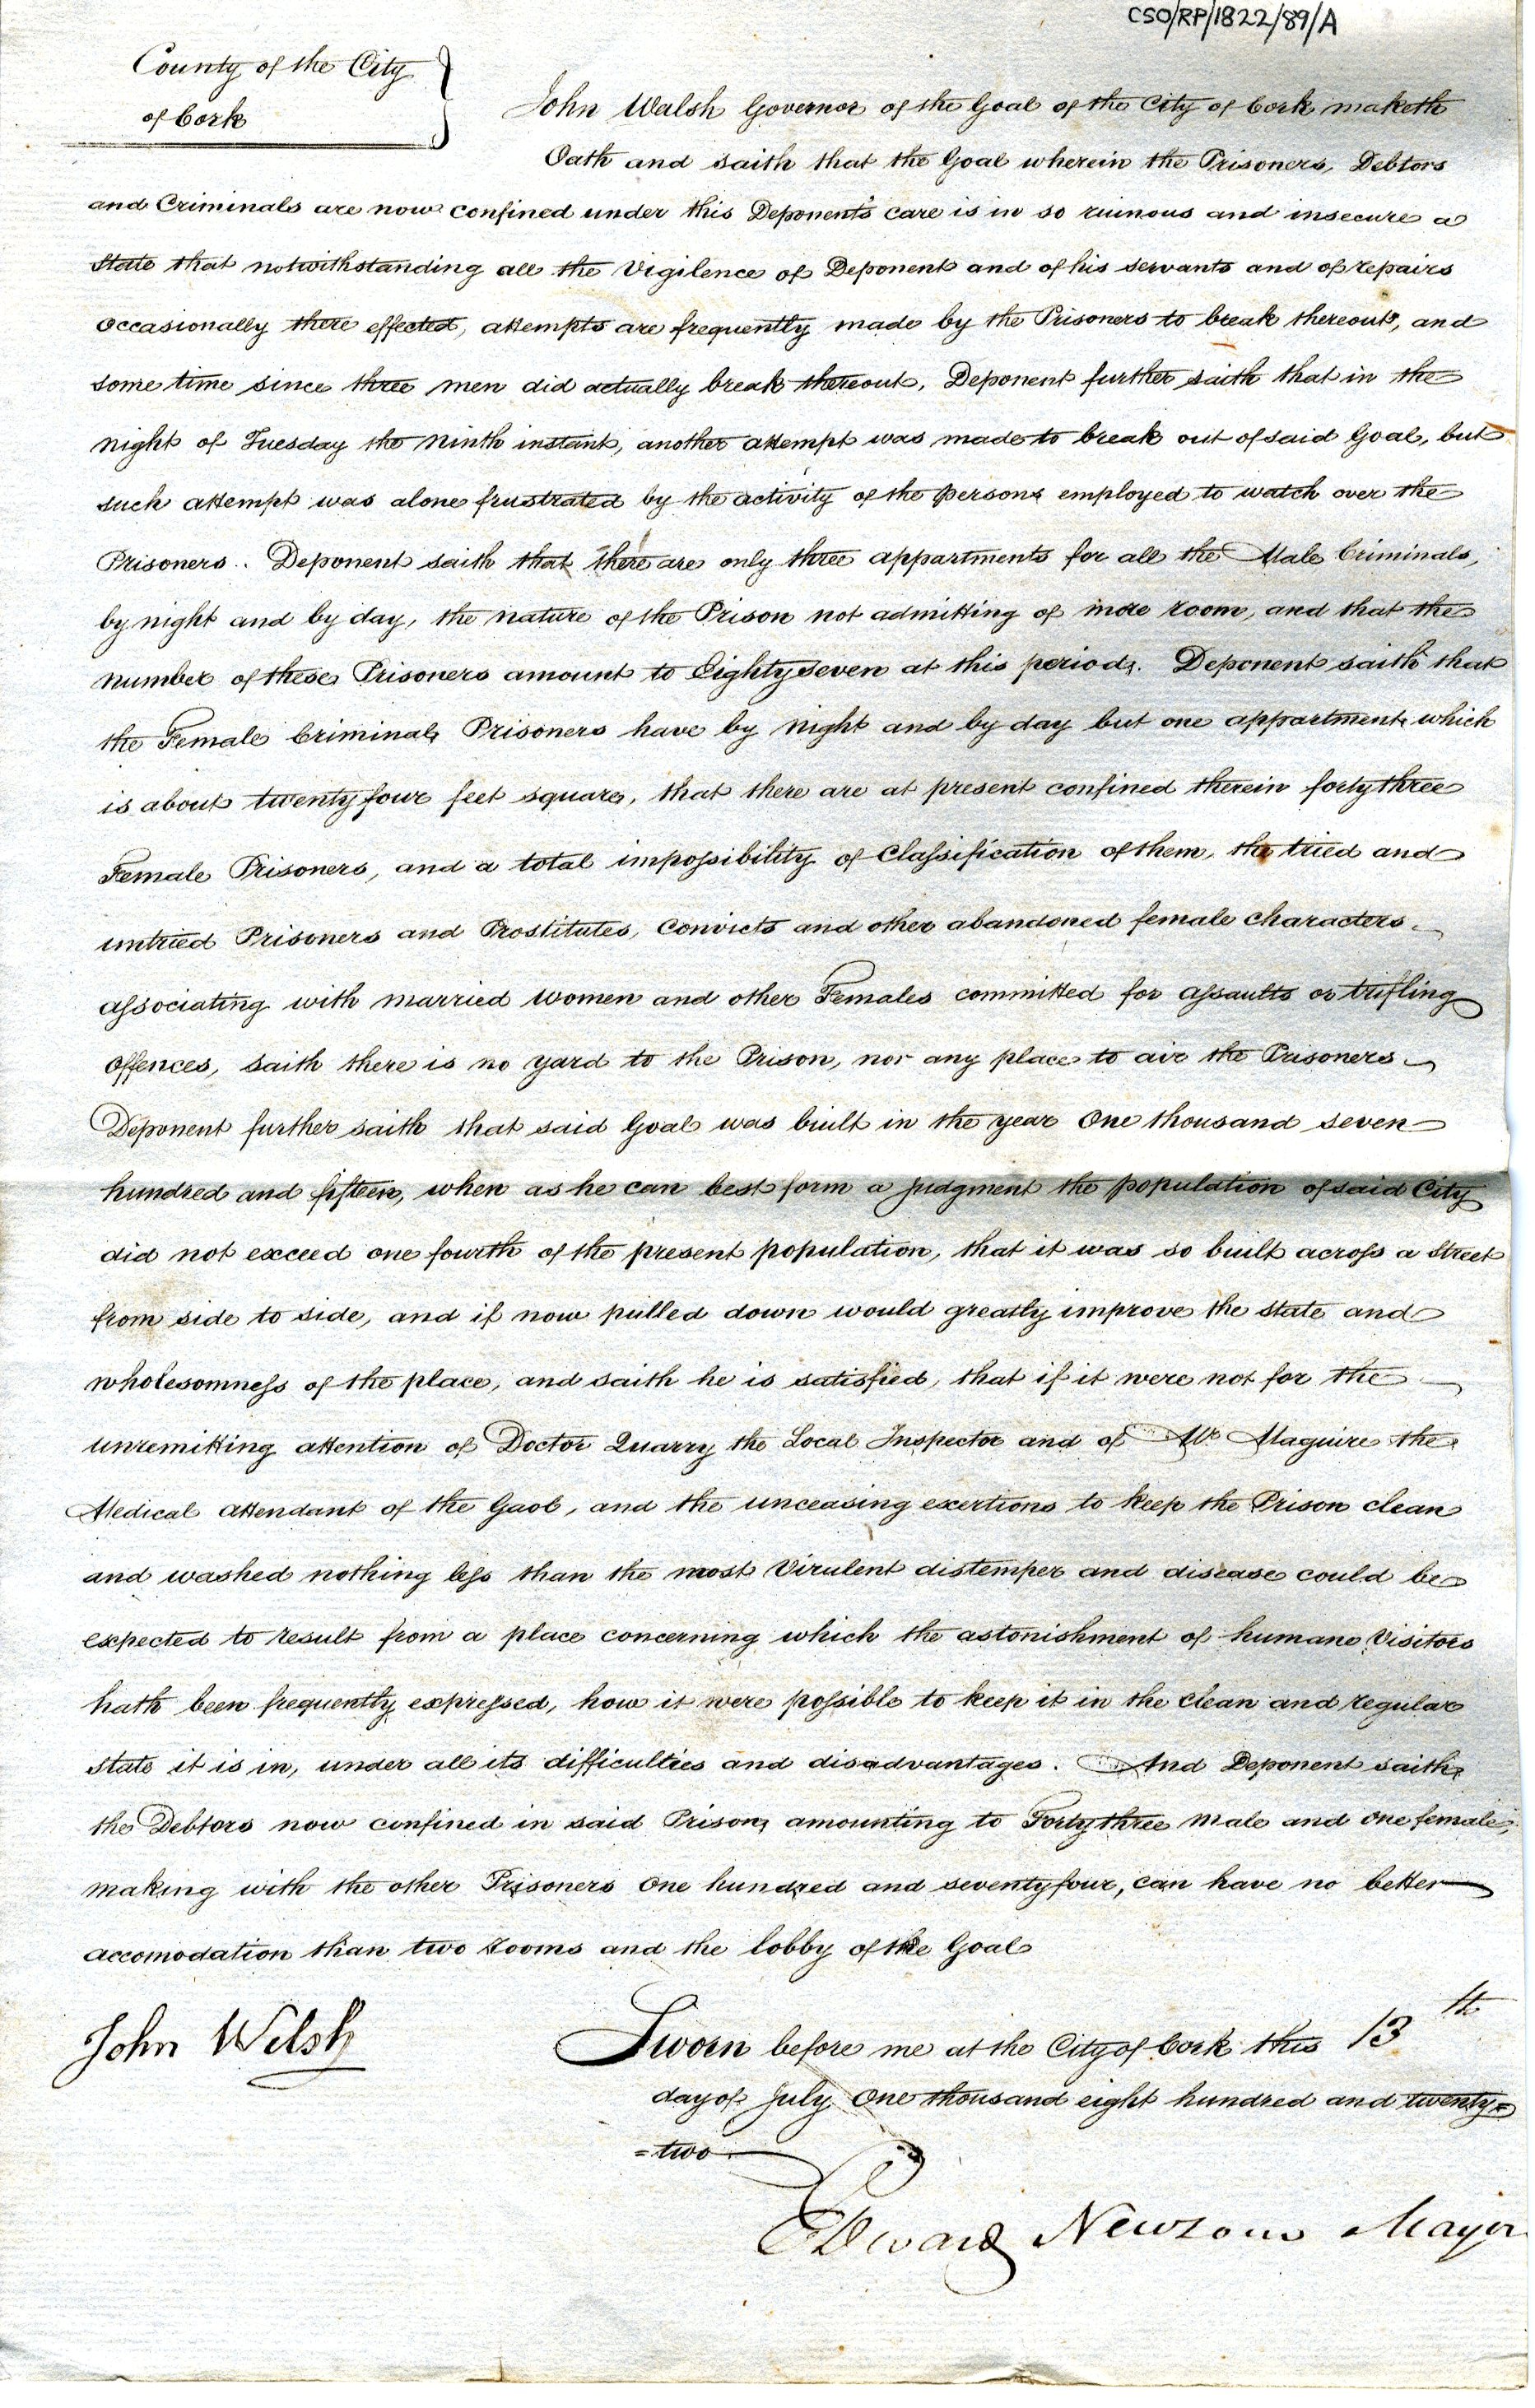 CSO/RP/1822/89/A
County of the City
of Cork
John Walsh Governor of the Goal of the City of Cork maketh
Oath and saith that the Goal wherein the Prisoners, Debtors
and Criminals are now confined under this Deponent's care is in so ruinous and insecure a
State that notwithstanding all the Vigilence of Deponent and of his servants and of repairs
occasionally there effected, attempts are frequently made by the Prisoners to break thereout, and
some time since three men did actually break thereout. Deponent further saith that in the
night of Tuesday the ninth instant, another attempt was made to break out of said Goal, but
such attempt was alone frustrated by the activity of the persons employed to watch over the
Prisoners. Deponent saith that there are only three appartments for all the Male Criminals,
by night and by day, the nature of the Prison not admitting of more room, and that the
number of these Prisoners amount to Eighty seven at this period. Deponent saith that
the Female Criminal Prisoners have by night and by day but one appartment which
is about twenty four feet square, that there are at present confined therein forty three
Female Prisoners, and a total impossibility of Classification of them, the tried and
untried Prisoners and Prostitutes, convicts and other abandoned female characters
associating with married women and other Females committed for assaults or trifling
offences, saith there is no yard to the Prison, nor any place to air the Prisoners
Deponent further saith that said Goal was built in the year One thousand seven
hundred and fifteen, when as he can best form a judgment the population of said City
did not exceed one fourth of the present population, that it was so built across a Street
from side to side, and if now pulled down would greatly improve the state and
wholesomness of the place, and saith he is satisfied, that if it were not for the
unremitting attention of Doctor Quarry the Local Inspector and of Mr Maguire the
Medical attendant of the Gaol, and the unceasing exertions to keep the Prison clean
and washed nothing less than the most Virulent distemper and disease could be
expected to result from a place concerning which the astonishment of humane Visitors
hath been frequently expressed, how it were possible to keep it in the clean and regular
state it is in, under all its difficulties and disadvantages. And Deponent saith
the Debtors now confined in said Prison, amounting to Forty three male and one female,
making with the other Prisoners one hundred and seventy four, can have no better
accomodation than two rooms and the lobby of the Goal
John Welsh
Sworn before me at the City of Cork this 13th
day of July One thousand eight hundred and twenty=
=two
Edward Newsom Mayor